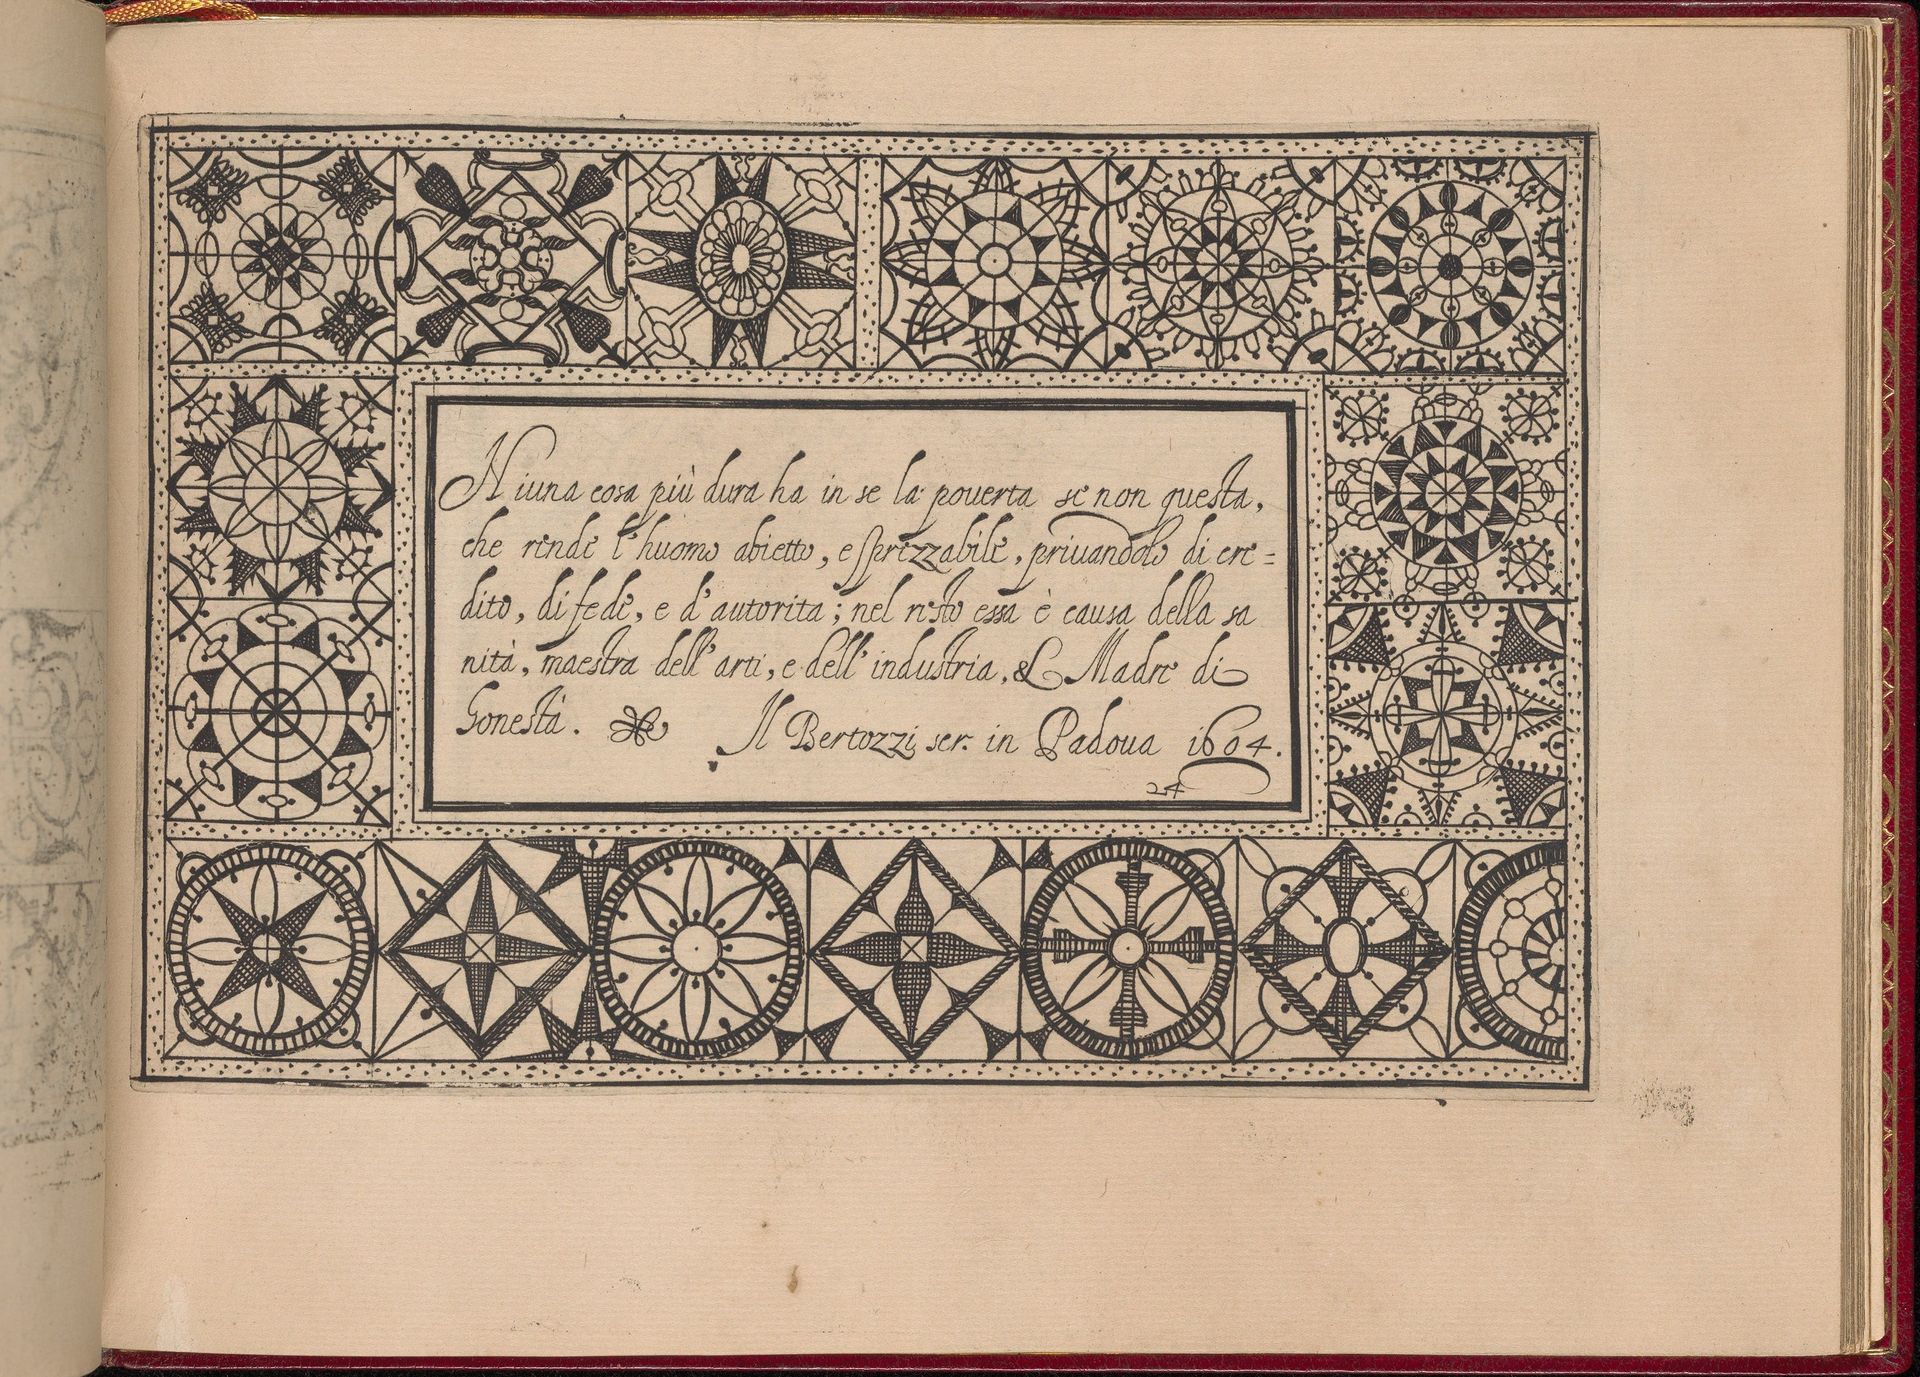 Niuna cosa più dura ha in se la pouerta se non questa,
che rende l'huomo abietto, e sprezzabile, priuandolo di cre=
dito, di fede, e d'autorita; nel resto essa è causa della sa
nità, maestra dell'arti, e dell'industria, & Madre di
honestà.
Il Bertozzi scr. in Padoua 1604.
24